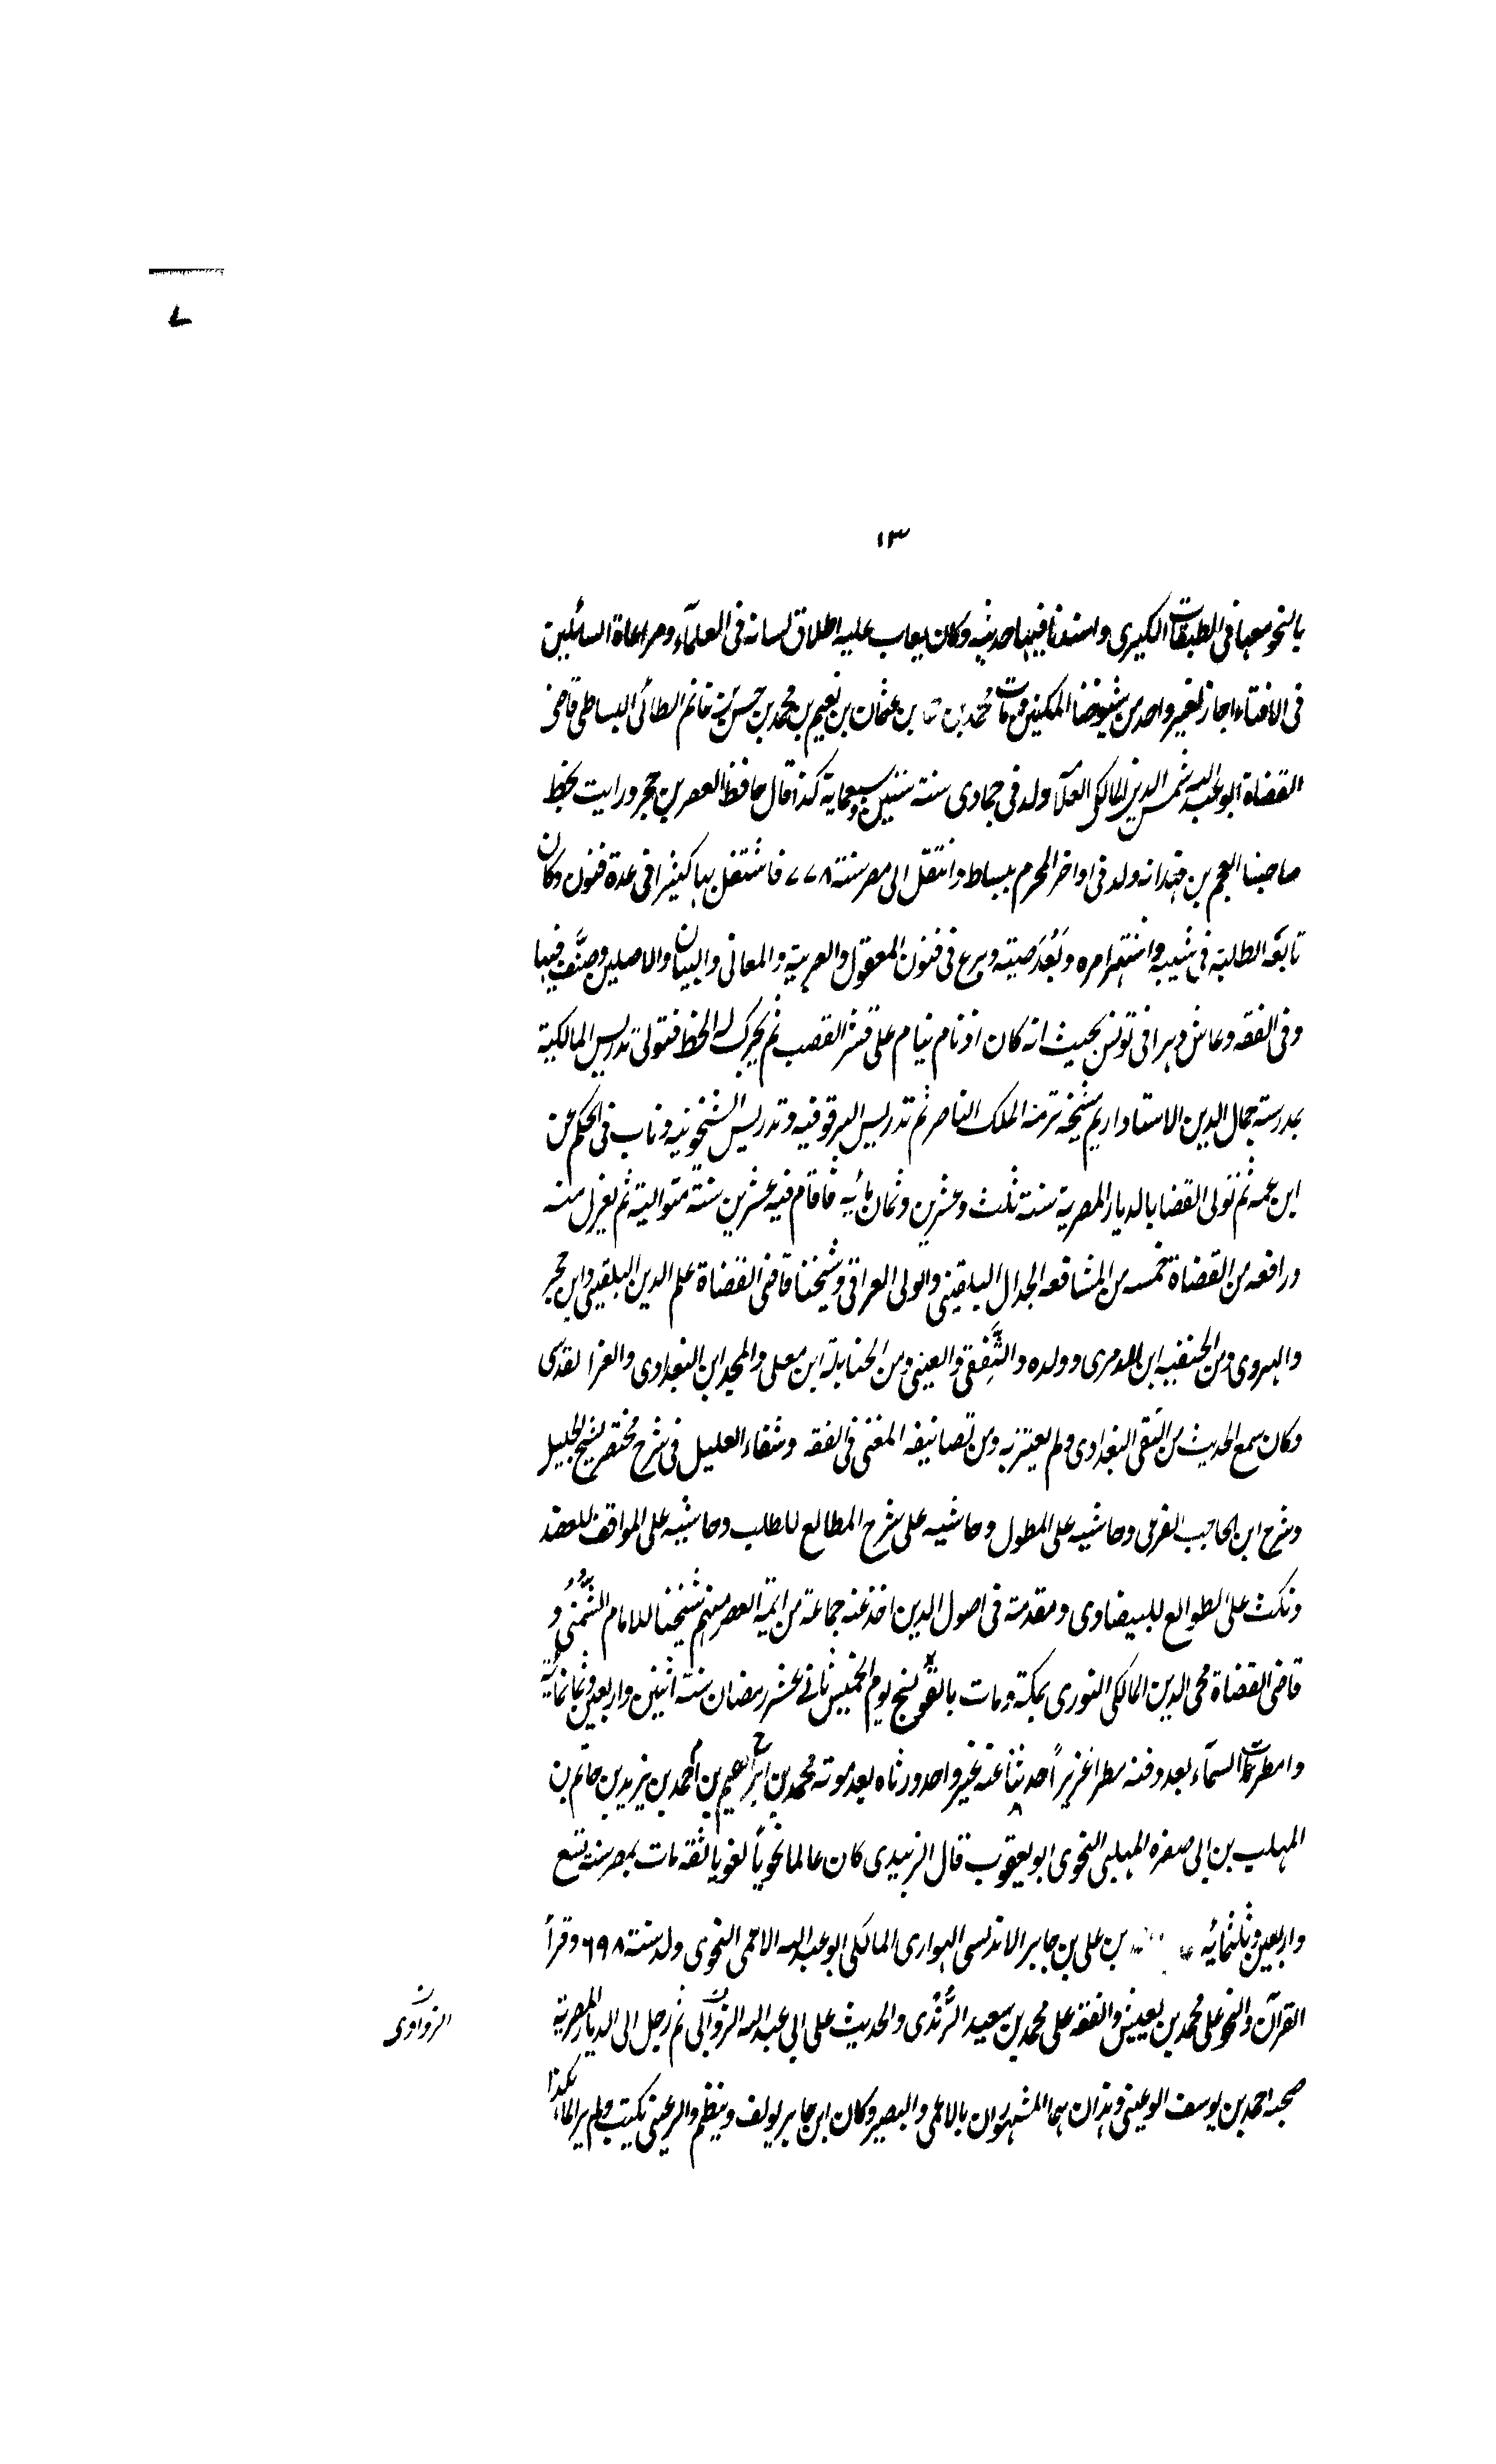 ١٣
بالنحو سقناها في الطبقات الكبرى واستفدنا فيها حديثه وكان يعاب عليه اطلاق لسانه في العلمآء ومراعاة السائلين
في الافتاء اجاز لغير واحد من شيوخنا المكيين ومات محمد بن بن عثمان بن نعيم بن محمد بن حسن بن غانم الطائى البساطى قاضى
القضاة ابو عبد الله شمس الدين المالكى العلآ ولد فى جمادى سنة ستين وسبعماية كذا قال حافظ العصر بن حجر ورايت بخط
صاحبنا النجم بن فهد انه ولد فى اواخر المحرم ببساط وانتقل الى مصر سنة ٧٧٨ فاشتغل بها كثيرا فى عدة فنون وكان
تابغه الطلبة فى شيبه واشتهر امره وبَعُدَ صيته وبرع فى فنون المعقول والعربية والمعانى والبيان والاصلين وصنَّف فيها
وفى الفقه وعاش دهرا فى تونس بحيث انه كان اذ نام ينام على قشر القصب ثم تحرك له الحظ فتولى تدريس المالكية
بمدرسة جمال الدين الاستادار ثم شيخة تربة الملك الناصر ثم تدريس البرقوقيه وتدريس الشيخونيه وناب فى الحكم عن
ابن عمه ثم تولى القضا بالديار المصرية سنة ثلث وعشرين وثمان مائيه فاقام فيه عشرين سنة متوالية ثم يعزل منه
ورافعه من القضاة خمسه من المشافعه الجلال البلقينى والولى العراقى وشيخنا قاضى القضاة علم الدين البلقينى وابن حجر
والهروى ومن الحنفيه ابن المدمرى وولده والتَّفِهْنى والعينى ومن الحنابلة ابن معلى والمحب ابن البغدادى والعز المقدسى
وكان سمع الحديث من التقى البغدادى ولم يعتن به ومن تصانيفه المغنى فى الفقه وشفاء العليل فى شرح مختصر الشيخ الجليل
وشرح ابن الحاجب الفرعى وحاشيه على المطول وحاشيه على شرح المطالع للقطب وحاشيه على المواقف للعضد
ونكت على الطوالع للبيضاوى ومقدمة فى اصول الدين اخذ عنه جماعة من ائمة العصر منهم شيخنا الامام الشُّمُنّى و
قاضى القضاة محى الدين المالكى النورى بمكة ومات بالقولنج يوم الخميس ثانى عشر رمضان سنة اثنين واربعين وثمانمائة
وامطرت السمآء بعد دفنه مطرا غزيراً حدثنا عنه غير واحد ورثاه بعد موته محمد بن ابراهيم بن احمد بن يزيد بن حاتم بن
المهلب بن ابى صفره المهلبى النحوى ابو يعقوب قال الزبيدى كان عالما نحوياً لغويا ثقه مات بمصر سنة تسع
واربعين وثلثمائه بن على بن جابر الاندلسى الهوارى المالكى ابو عبد الله الاعمى النحوى ولد سنة ٦٩٨ وقرأ
القرآن والنحو على محمد بن يعيش والفقه على محمد بن سعيد الرُّنْدى والحديث على ابى عبد الله الزوالى ثم رحل الى الديار المصرية
الزواوى
صحبه احمد بن يوسف الرعينى وهذان هما المشهوران بالاعمى والبصير وكان ابن جابر يولف وينظم والرعينى يكتب ولم يزالا هكذا